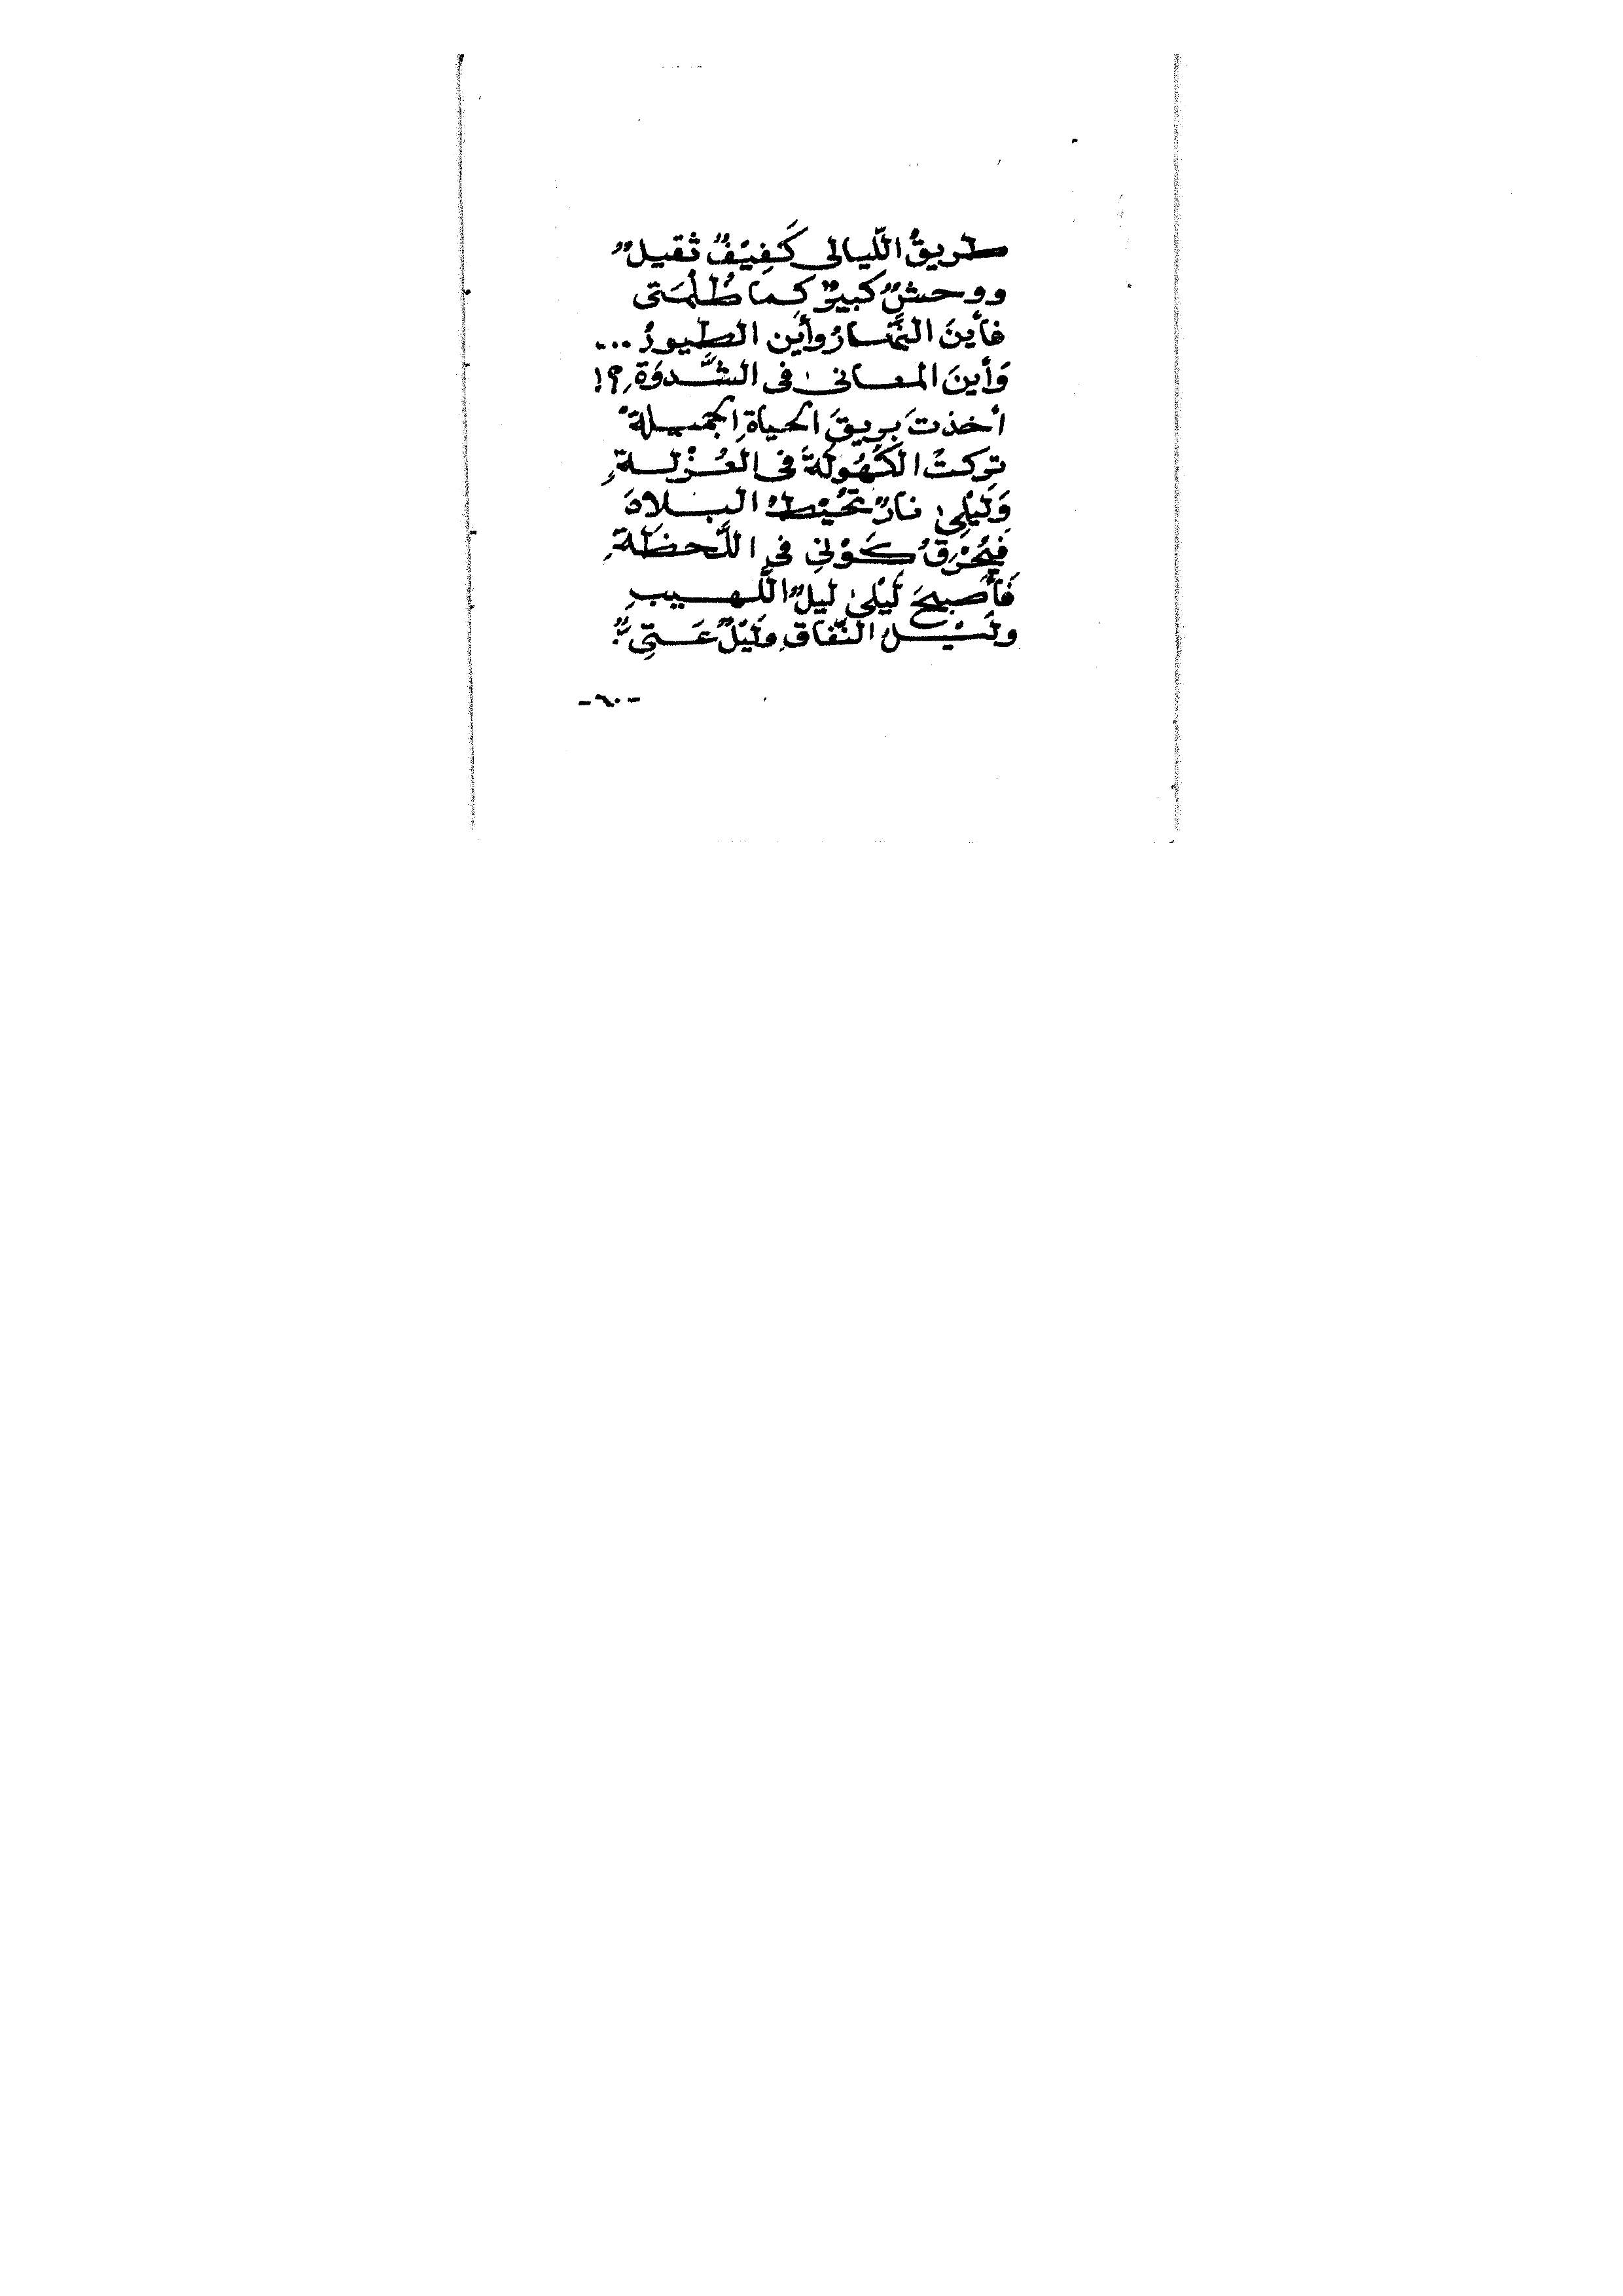 طريقُ اللّيالى كَفِيْفٌ ثقيلٌ
ووحشٌ كبيرٌ كما ظُلْمَتى
فأينَ النَّهارُ وأين الطيورُ ...
وَأينَ المعانى فى الشَّدوَةِ؟!
أخذتَ بريقَ الحياةِ الجميلة
تركتَ الكُهُولَةَ فى العُزْلةِ
وَلَيْلِى نارٌ تُحُيْطُ البلادَ
فيُحْرِقُ كَوْنِي فِي اللَّحظَةِ
فَأصبحَ لَيْلى ليلُ اللَّهيبِ
ولَيْلُ النّفاقِ وَلَيْلٌ عَتِىٌّ:
-٦٠-